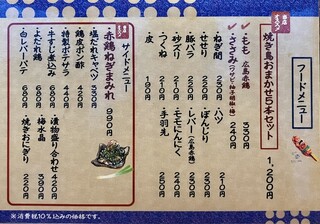 フードメニュー
焼き鳥おまかせ5本セット 1,200円
もも 広島赤鶏 330円
ささみ(ワサビ・柚子胡椒・梅) 240円
ねぎ間 230円
せせり 250円
豚バラ 220円
砂ズリ 210円
つくね 210円
皮 190円
ハツ 210円
ぼんじり 230円
レバー(広島赤鶏) 250円
ももにんにく 250円
手羽先 240円
赤鶏ねぎまみれ 990円
サイドメニュー
塩だれキャベツ 330円
鶏皮ポン酢 420円
特製ポテサラ 440円
牛すじ煮込み 680円
よだれ鶏 680円
白レバーパテ 680円
漬物盛り合わせ 420円
梅水晶 390円
焼きおにぎり 220円
※消費税10%込みの価格です。